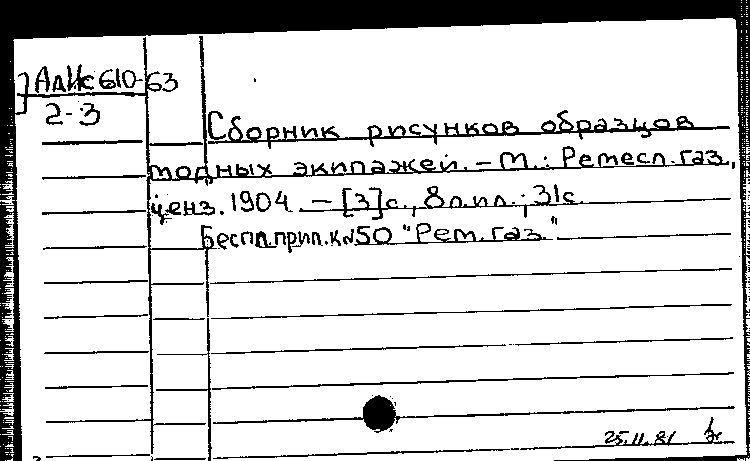 АлИс 610-63
2-3
Сборник рисунков образцов
модных экипажей. – М.: Ремесл. газ.,
ценз. 1904. – [3]с., 8 л. ил.; 31с.
Беспл. прил. к №50 "Рем. газ."
25.11.81